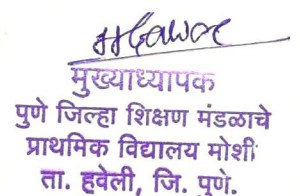 मुख्याध्यापक
पुणे जिल्हा शिक्षण मंडळाचे
प्राथमिक विद्यालय मोशी
ता. हवेली, जि. पुणे.